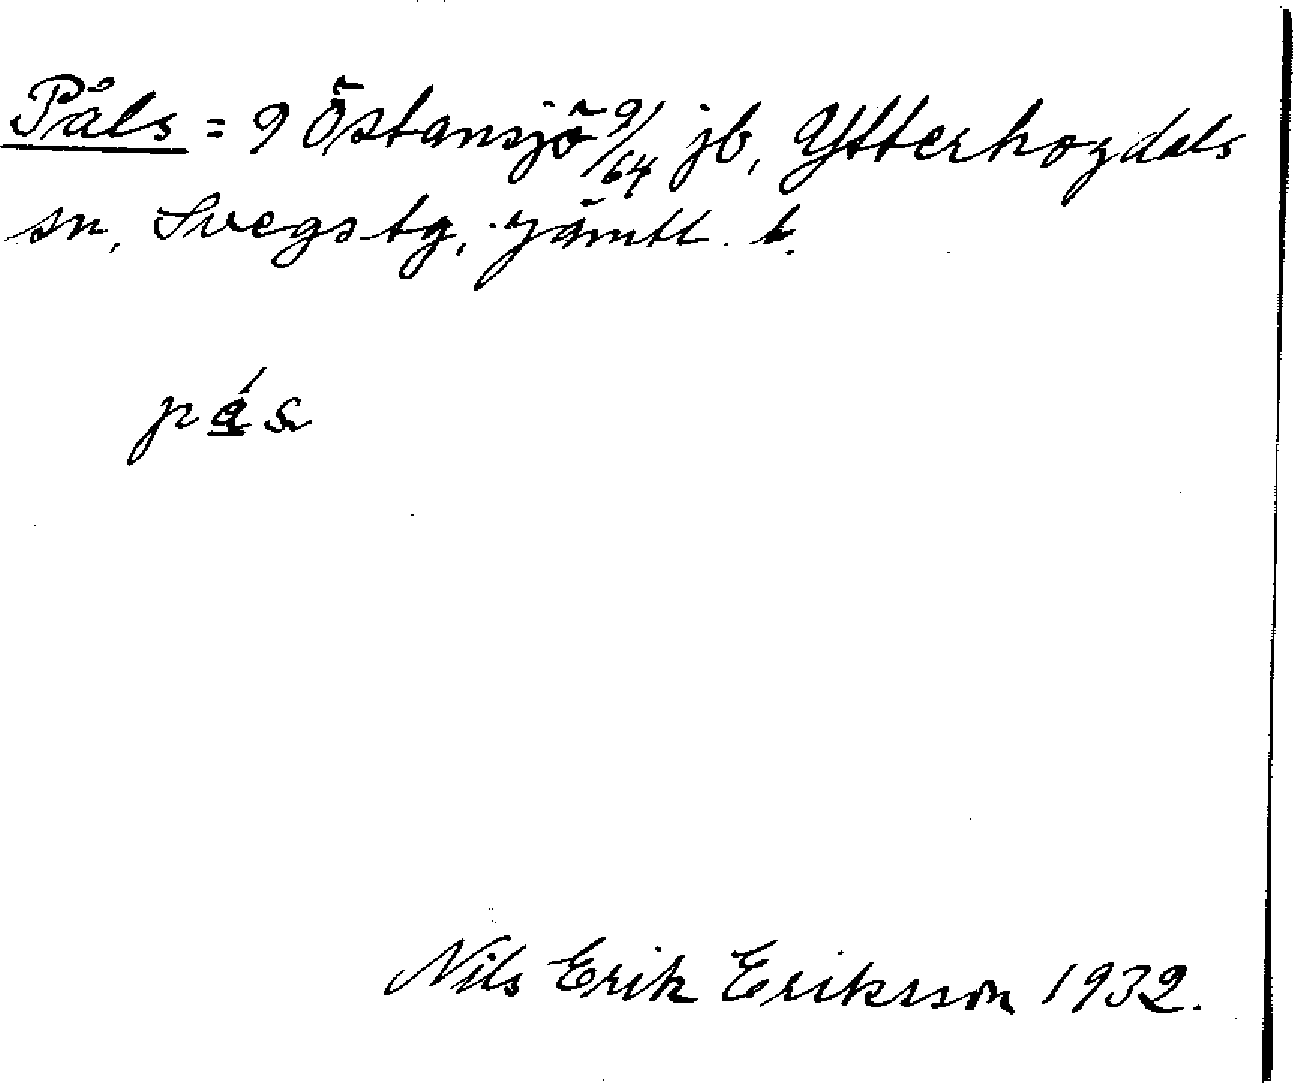 Påls = 9 Östansjö 9/64 jb, Ytterhogdals
sn, Svegs tg, Jämtl. l.
pás
Nils Erik Eriksson 1932.